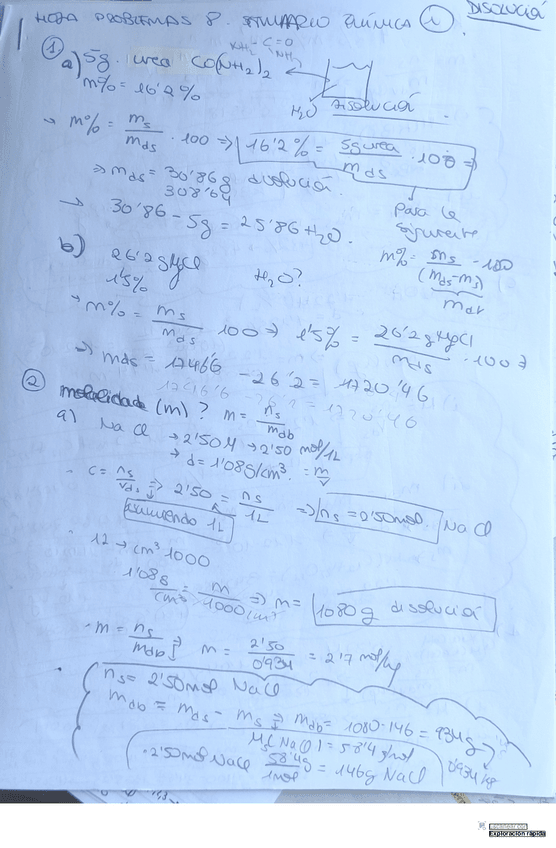 DISOLUCIÓ
HOJA PROBLEMAS 8. SEMINARIO QUÍMICA ①
① a) 5g. urea CO(NH2)2
NH2 - C = O
NH2
m% = 16'2%
H2O disolució
→ m% = ms/mds · 100 ⇒ 16'2% = 5g urea/mds · 100 ⇒
⇒ mds = 30'86g disolució.
308'64
→ 30'86 - 5g = 25'86 H2O.
para la siguiente
m% = ms/(mds-ms) · 100
mdr
b) 26'2 g MgCl
1'5% H2O?
→ m% = ms/mds · 100 ⇒ 1'5% = 26'2g MgCl/mds · 100 ⇒
→ mds = 1746'6 - 26'2 = 1720'46
② molalidad (m)? m = ns/mdb
a) NaCl → 2'50M → 2'50 mol/1L
→ d = 1'08g/cm³. = m/V
· C = ns/Vds ⇒ 2'50 = ns/1L ⇒ ns = 0'50mol. NaCl
asumiendo 1L
· 1L → cm³ 1000
1'08g/cm³ = m/1000cm³ ⇒ m = 1080g disolució
· m = ns/mdb ⇒ m = 2'50/0'934 = 2'7 mol/kg
· ns = 2'50mol NaCl
mdb = mds - ms ⇒ mdb = 1080 - 146 = 934g
0'934 kg
Ms(NaCl) = 58'4 g/mol
· 2'50mol NaCl 58'4g/1mol = 146g NaCl
Exploración rápida